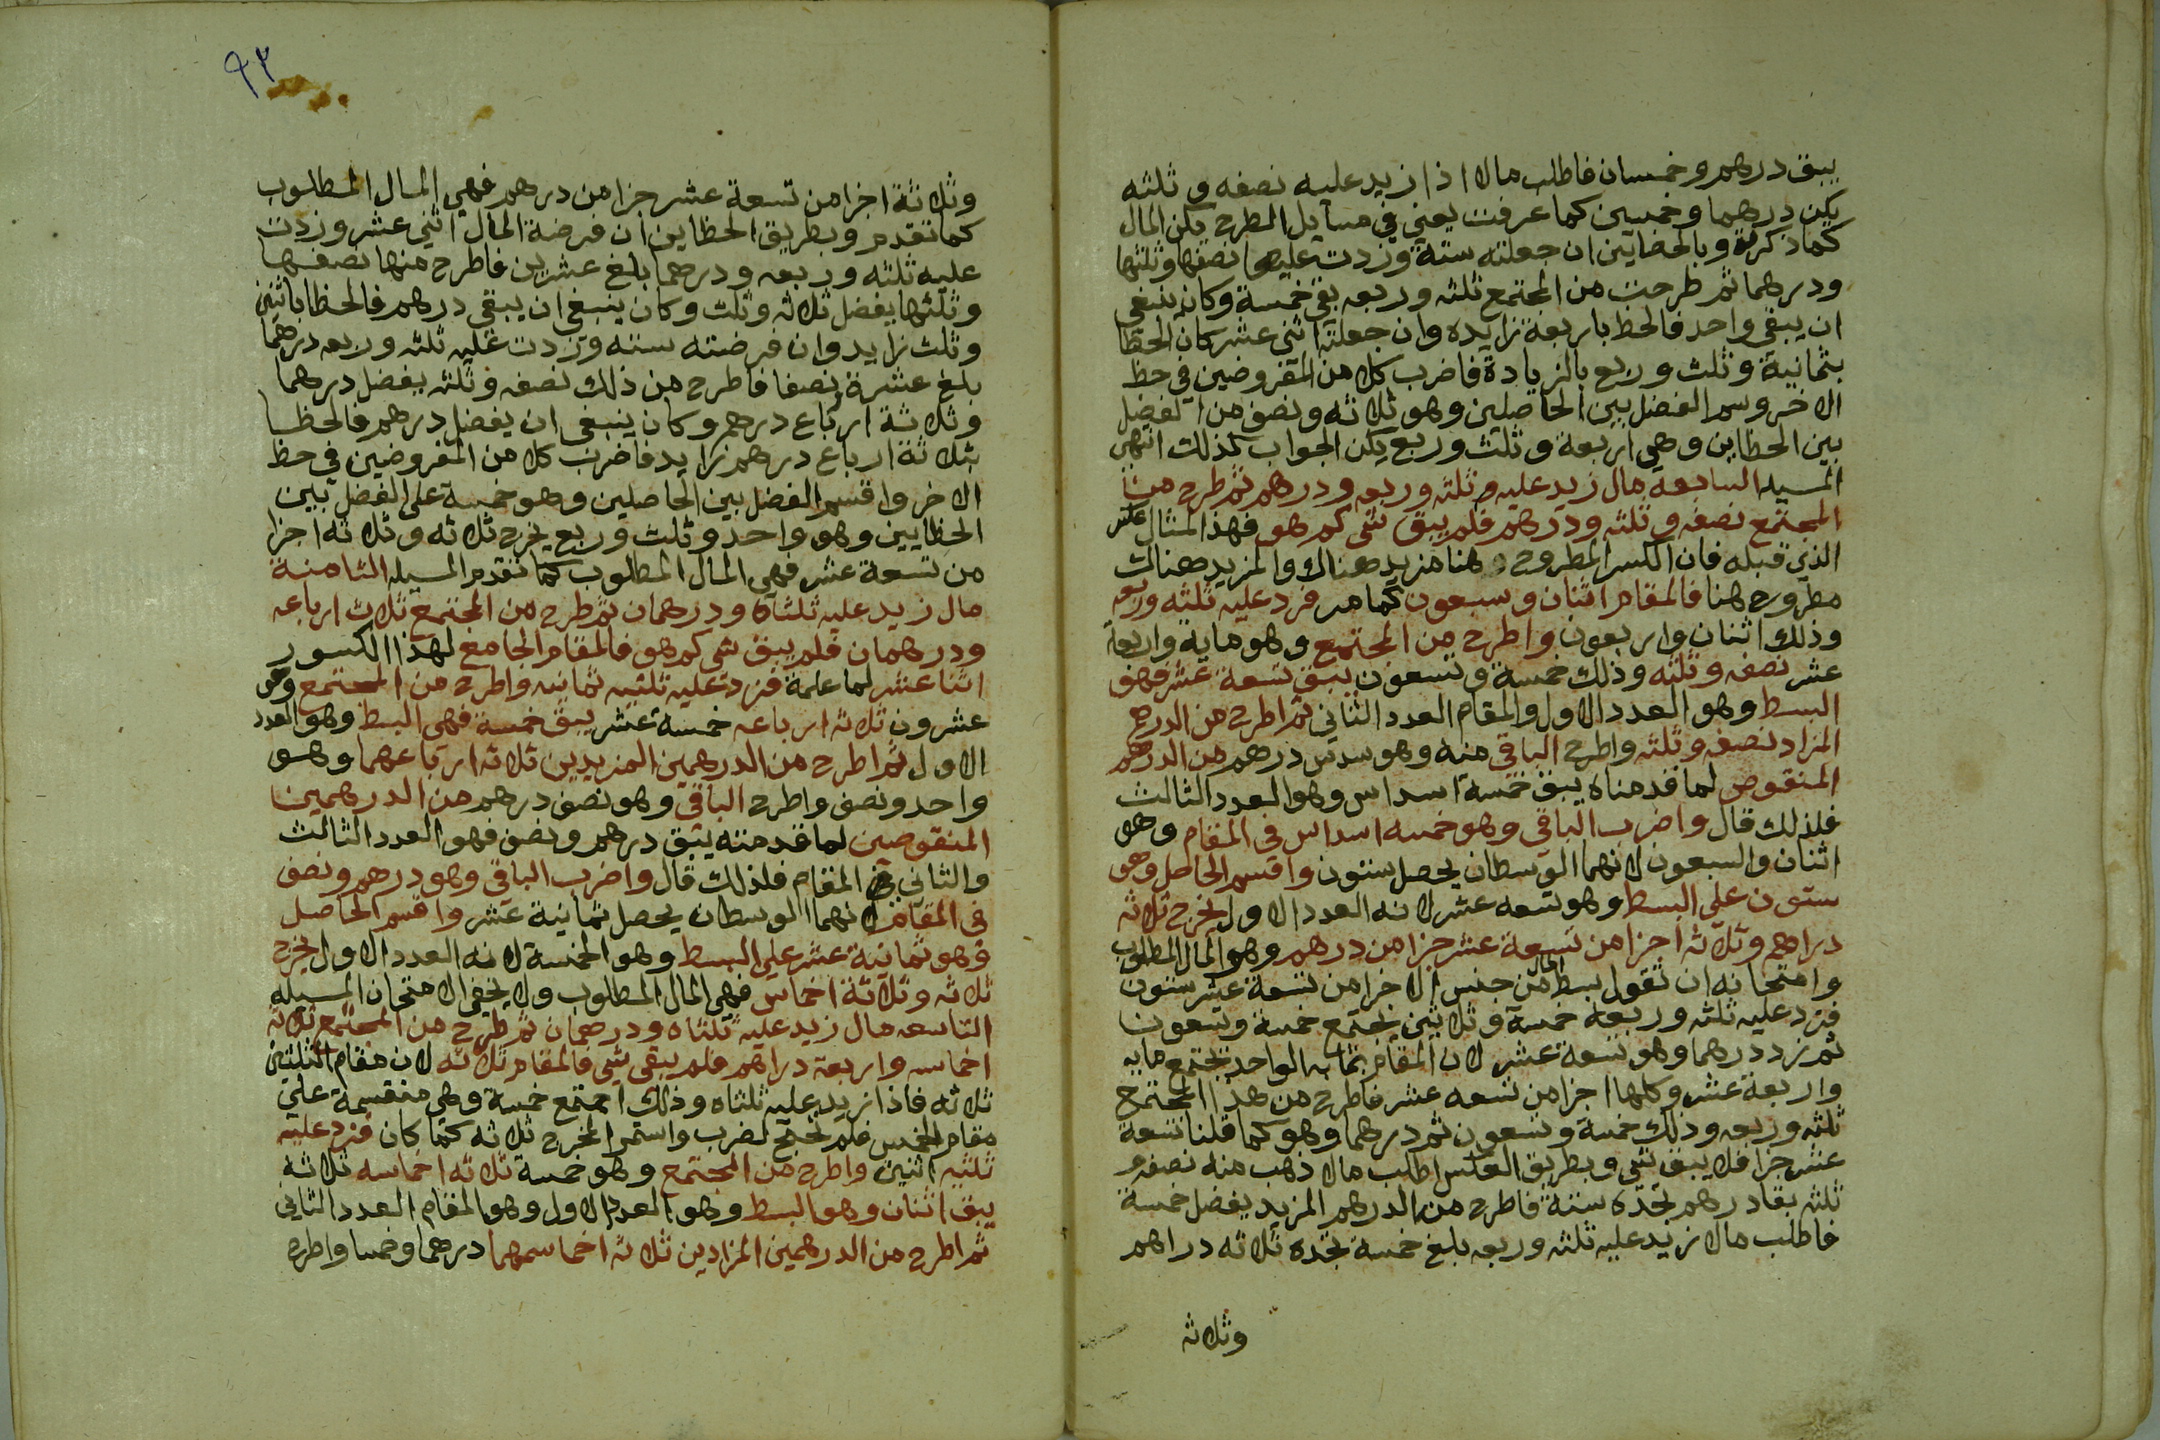 يبقى درهم وخمسان فاطلب مالا اذا زيد عليه نصفه وثلثه
يكن درهما وخمسين كما عرفت يعني في مسايل الطرح يكن المال
كما ذكرة وبالخطايين ان جعلته ستة وزدت عليها نصفها وثلثها
ودرهما ثم طرحت من المجتمع ثلثه وربعه بقي خمسة وكان ينبغي
ان يبقى واحد فالخطا باربعة زايده وان جعلته اثني عشر كان الخطا
بثمانية وثلث وربع بالزيادة فاضرب كلا من المفروضين في خطا
الاخر وسم الفضل بين الحاصلين وهو ثلاثه ونصف من الفضل
بين الخطاين وهي اربعة وثلث وربع يكن الجواب كذلك انتهى
المسيله السابعة مال زيد عليه ثلثه وربعه ودرهم ثم طرح من
المجتمع نصفه وثلثه ودرهم فلم يبق شي كم هو فهذا المثال عكس
الذي قبله فان الكسر المطروح هنا مزيد هناك والمزيد هناك
مطروح هنا فالمقام اثنان وسبعون كما مر فزد عليه ثلثه وربعه
وذلك اثنان واربعون واطرح من المجتمع وهو ماية واربعة
عشر نصفه وثلثه وذلك خمسة وتسعون يبقى تسعة عشر فهو
البسط وهو العدد الاول والمقام العدد الثاني ثم اطرح من الدرهم
المزاد نصفه وثلثه واطرح الباقي منه وهو سدس درهم من الدرهم
المنقوص لما قدمناه يبق خمسة اسداس وهو العدد الثالث
فلذلك قال واضرب الباقي وهو خمسه اسداس في المقام وهو
اثنان والسبعون لانهما الوسطان يحصل ستون واقسم الحاصل وهو
ستون على البسط وهو تسعه عشر لانه العدد الاول يخرج ثلاثه
دراهم وثلاثه اجزا من تسعة عشر جزا من درهم وهو المال المطلوب
وامتحانه ان تقول بسط المال من جنس الاجزا من تسعة عشر ستون
فزد عليه ثلثه وربعه خمسة وثلاثين يجتمع خمسة وتسعون
ثم زد درهما وهو تسعة عشر لان المقام بمثابه الواحد يجتمع مايه
واربعة عشر وكلها اجزا من تسعه عشر فاطرح من هذا المجتمع
ثلثه وربعه وذلك خمسة وتسعون ثم درهما وهو كما قلنا تسعة
عشر جزا فلا يبق شي وبطريق العكس اطلب مالا ذهب منه نصفه و
ثلثه بقا درهم تجده ستة فاطرح من الدرهم المزيد يفضل خمسة
فاطلب مالا زيد عليه ثلثه وربعه بلغ خمسة تجده ثلاثه دراهم
وثلاثه
٩٢
وثلاثة اجزا من تسعة عشر جزا من درهم فهي المال المطلوب
كما تقدم وبطريق الخطاين ان فرضة المال اثني عشر وزدت
عليه ثلثه وربعه ودرهما بلغ عشرين فاطرح منها نصفها
وثلثها يفضل ثلاثه وثلث وكان ينبغي ان يبقى درهم فالخطا باثنين
وثلث زايد وان فرضته سته وزدت عليه ثلثه وربعه درهما
بلغ عشرة نصفا فاطرح من ذلك نصفه وثلثه يفضل درهما
وثلاثة ارباع درهم وكان ينبغي ان يفضل درهم فالخطا
بثلاثة ارباع درهم زايد فاضرب كلا من المفروضين في خطا
الاخر واقسم الفضل بين الحاصلين وهو خمسة على الفضل بين
الخطايين وهو واحد وثلث وربع يخرج ثلاثه وثلاثه اجزا
من تسعة عشر فهي المال المطلوب كما تقدم المسيله الثامنة
مال زيد عليه ثلثاه ودرهمان ثم طرح من المجتمع ثلاث ارباعه
ودرهمان فلم يبق شي كم هو فالمقام الجامع لهذا الكسور
اثنا عشر لما علمة فزد عليه ثلثيه ثمانيه واطرح من المجتمع وهو
عشرون ثلاثه ارباعه خمسة عشر يبق خمسة فهي البسط وهو العدد
الاول ثم اطرح من الدرهمين المزيدين ثلاثه ارباعهما وهو
واحد ونصف واطرح الباقي وهو نصف درهم من الدرهمين
المنقوصين لما قدمته يبق درهم ونصف فهو العدد الثالث
والثاني المقام فلذلك قال واضرب الباقي وهو درهم ونصف
في المقام لانهما الوسطان يحصل ثمانية عشر واقسم الحاصل
وهو ثمانية عشر على البسط وهو الخمسة لانه العدد الاول يخرج
ثلاثه وثلاثة اخماس فهي المال المطلوب ولا يخفى الامتحان المسيله
التاسعه مال زيد عليه ثلثاه ودرهمان ثم طرح من المجتمع ثلاثه
اخماسه واربعة دراهم فلم يبقى شي فالمقام ثلاثه لان مقام الثلثين
ثلاثه فاذا زيد عليه ثلثاه وذلك اجتمع خمسة وهي منقسمة على
مقام الخمس فلم تحتج لضرب واستمر المخرج ثلاثه كما كان فزد عليه
ثلثيه اثنين واطرح من المجتمع وهو خمسة ثلاثه اخماسه ثلاثة
يبق اثنان وهو البسط وهو العدد الاول وهو المقام العدد الثاني
ثم اطرح من الدرهمين المزادين ثلاثه اخماسهما درهما وخمسا واطرح